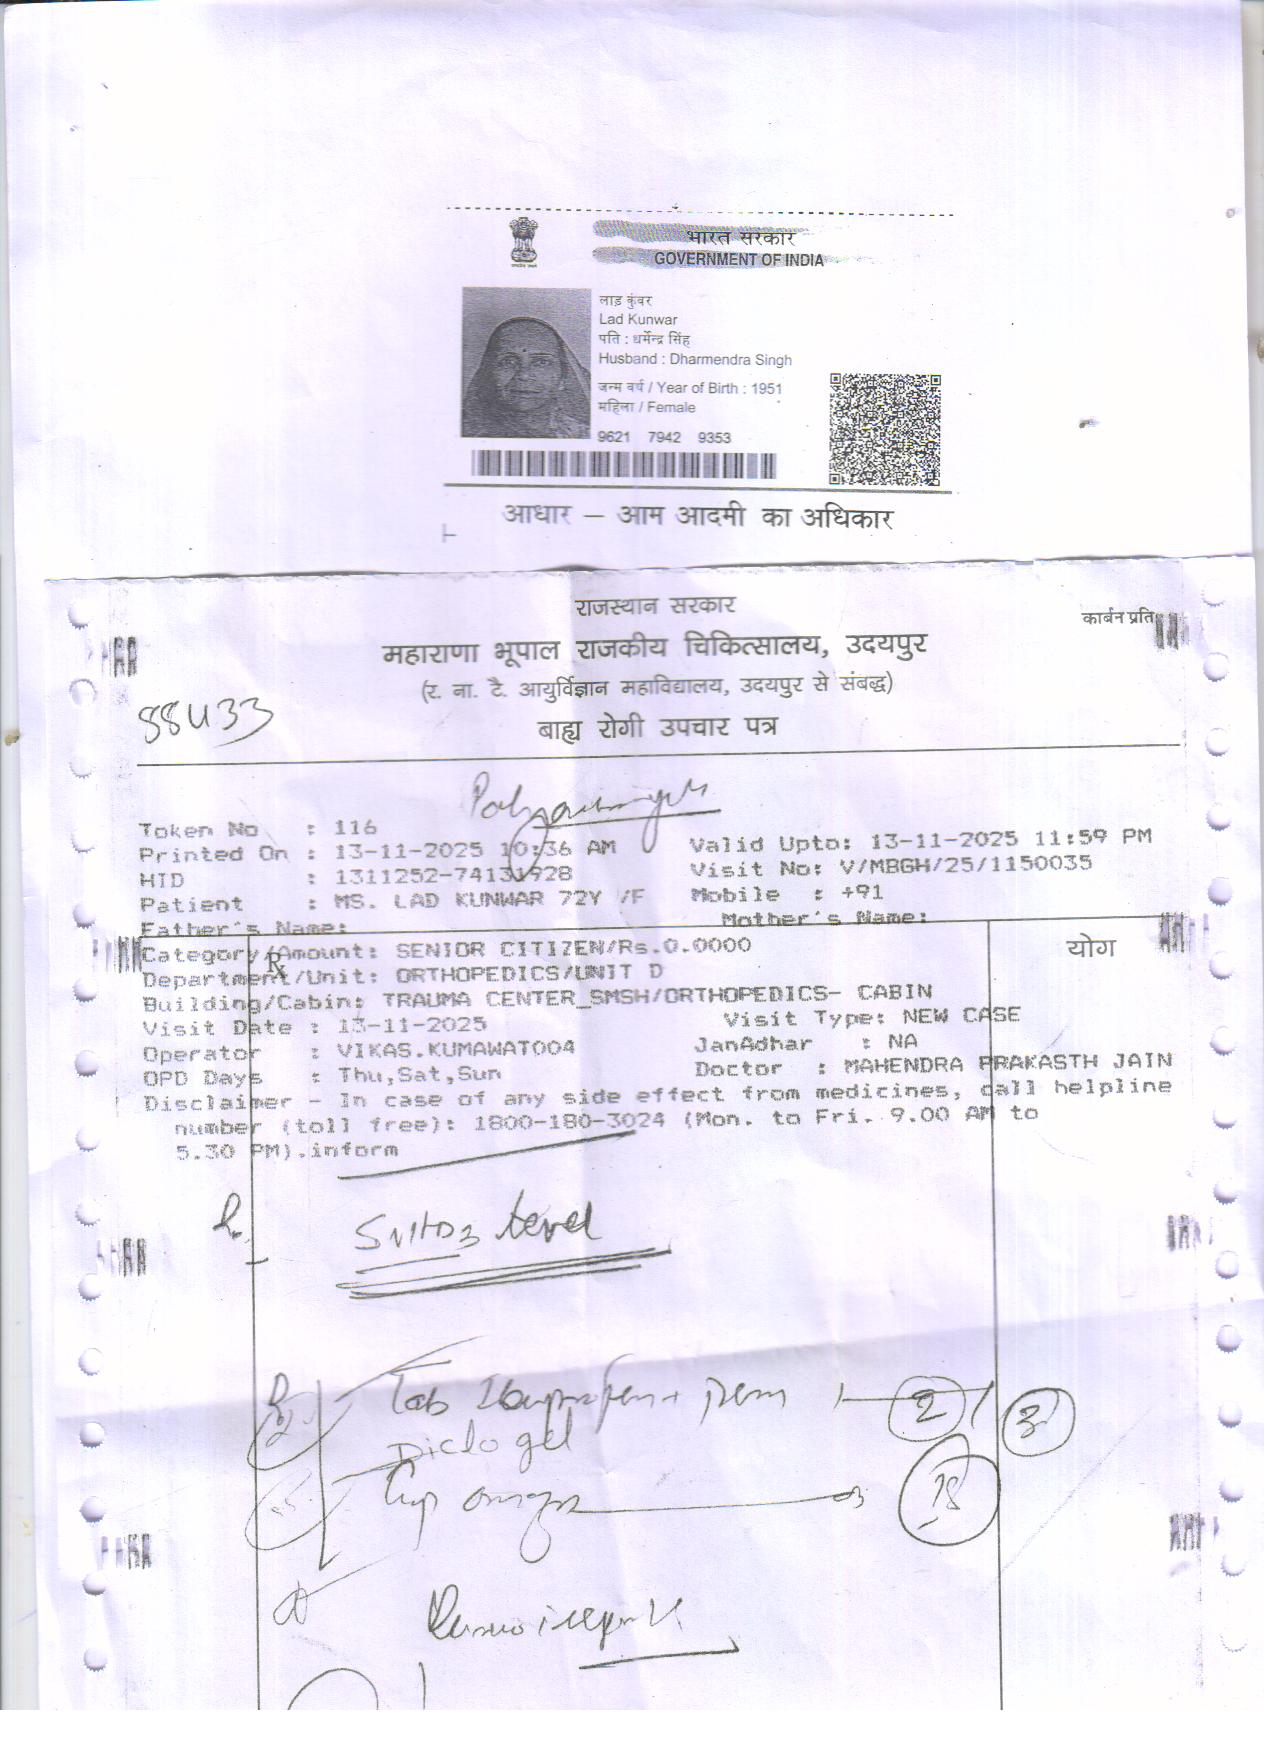 भारत सरकार
GOVERNMENT OF INDIA
लाड़ कुंवर
Lad Kunwar
पति : धर्मेन्द्र सिंह
Husband : Dharmendra Singh
जन्म वर्ष / Year of Birth : 1951
महिला / Female
9621 7942 9353
आधार – आम आदमी का अधिकार
राजस्थान सरकार
कार्बन प्रति
महाराणा भूपाल राजकीय चिकित्सालय, उदयपुर
(र. ना. टै. आयुर्विज्ञान महाविद्यालय, उदयपुर से संबद्ध)
बाह्य रोगी उपचार पत्र
Token No : 116
Printed On : 13-11-2025 10:36 AM Valid Upto: 13-11-2025 11:59 PM
HID : 1311252-74131928 Visit No: V/MBGH/25/1150035
Patient : MS. LAD KUNWAR 72Y /F Mobile : +91
Father's Name: Mother's Name:
Category/Amount: SENIOR CITIZEN/Rs.0.0000 योग
Rx
Department/Unit: ORTHOPEDICS/UNIT D
Building/Cabin: TRAUMA CENTER_SMSH/ORTHOPEDICS- CABIN
Visit Date : 13-11-2025 Visit Type: NEW CASE
Operator : VIKAS.KUMAWAT004 JanAdhar : NA
OPD Days : Thu,Sat,Sun Doctor : MAHENDRA PRAKASTH JAIN
Disclaimer - In case of any side effect from medicines, call helpline
number (toll free): 1800-180-3024 (Mon. to Fri. 9.00 AM to
5.30 PM).inform
level
Tab 2
Diclo gel
Cap 18